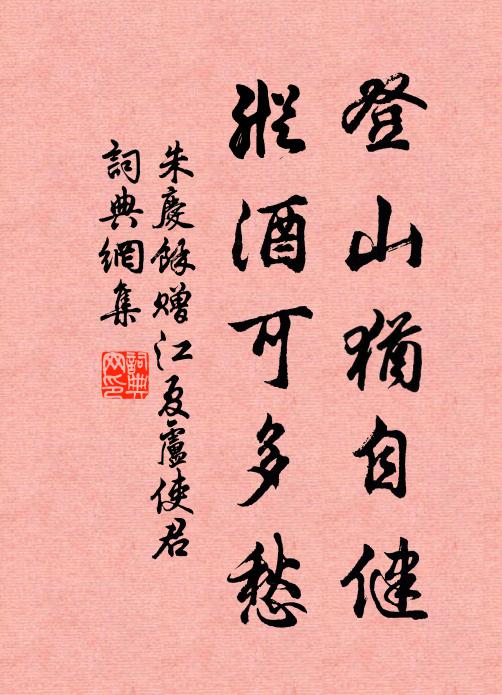 登山猶自健
縱酒可多愁
朱慶餘贈江夏盧使君
詞典網集
詞典网印